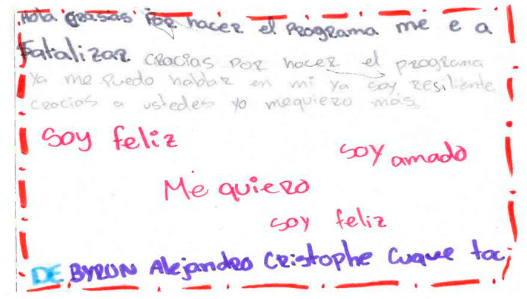 Hola grasias por hacer el programa me e a
Fatalizar cracias por hacer el programa
Ya me puedo hablar en mi ya soy resiliente
cracias a ustedes yo mequiero más.
Soy feliz
Soy amado
Me quiero
Soy feliz
DE BYRON Alejandro Cristophe Cuque toc